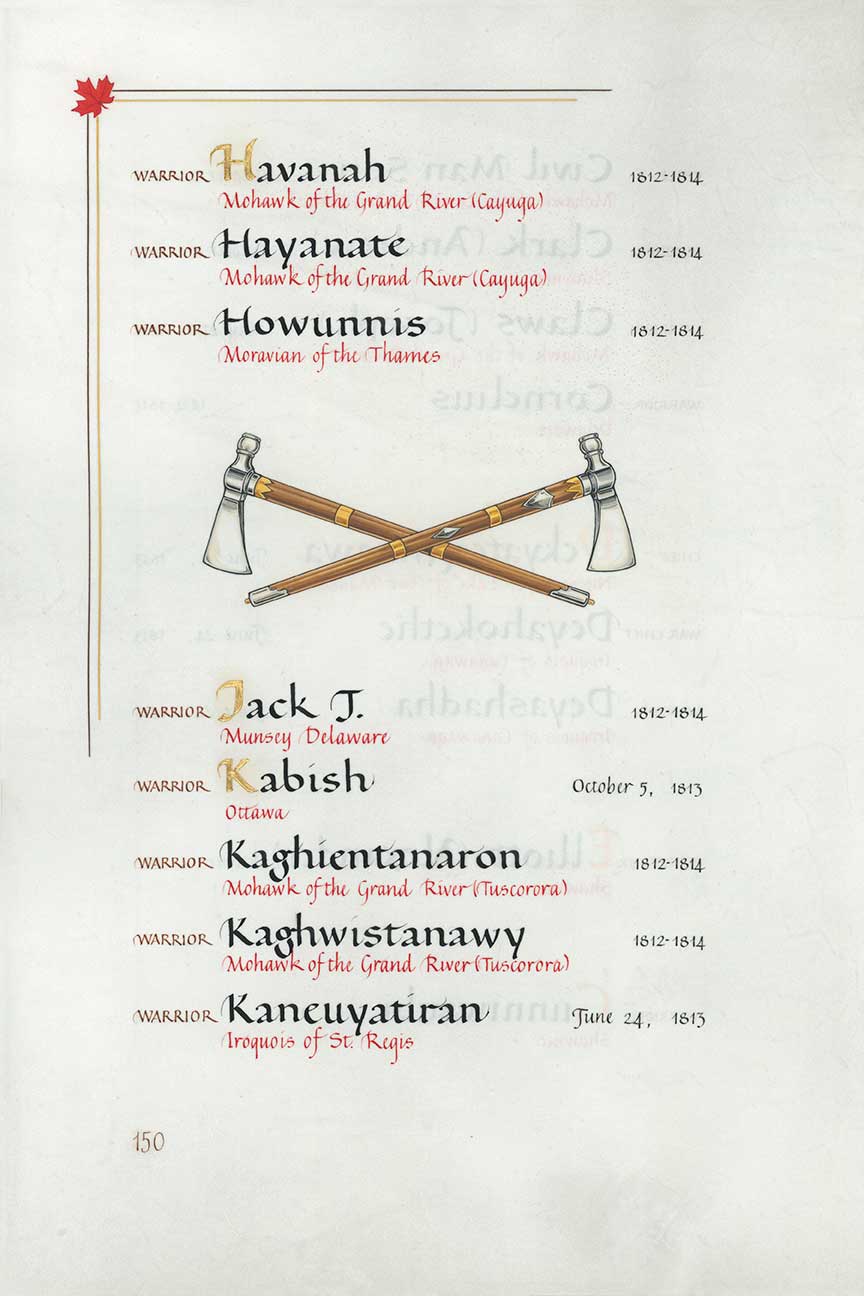 WARRIOR Havanah 1812-1814
Mohawk of the Grand River (Cayuga)
WARRIOR Hayanate 1812-1814
Mohawk of the Grand River (Cayuga)
WARRIOR Howunnis 1812-1814
Moravian of the Thames
WARRIOR Jack T. 1812-1814
Munsey Delaware
WARRIOR Kabish October 5, 1813
Ottawa
WARRIOR Kaghientanaron 1812-1814
Mohawk of the Grand River (Tuscorora)
WARRIOR Kaghwistanawy 1812-1814
Mohawk of the Grand River (Tuscorora)
WARRIOR Kaneuyatiran June 24, 1813
Iroquois of St. Regis
150